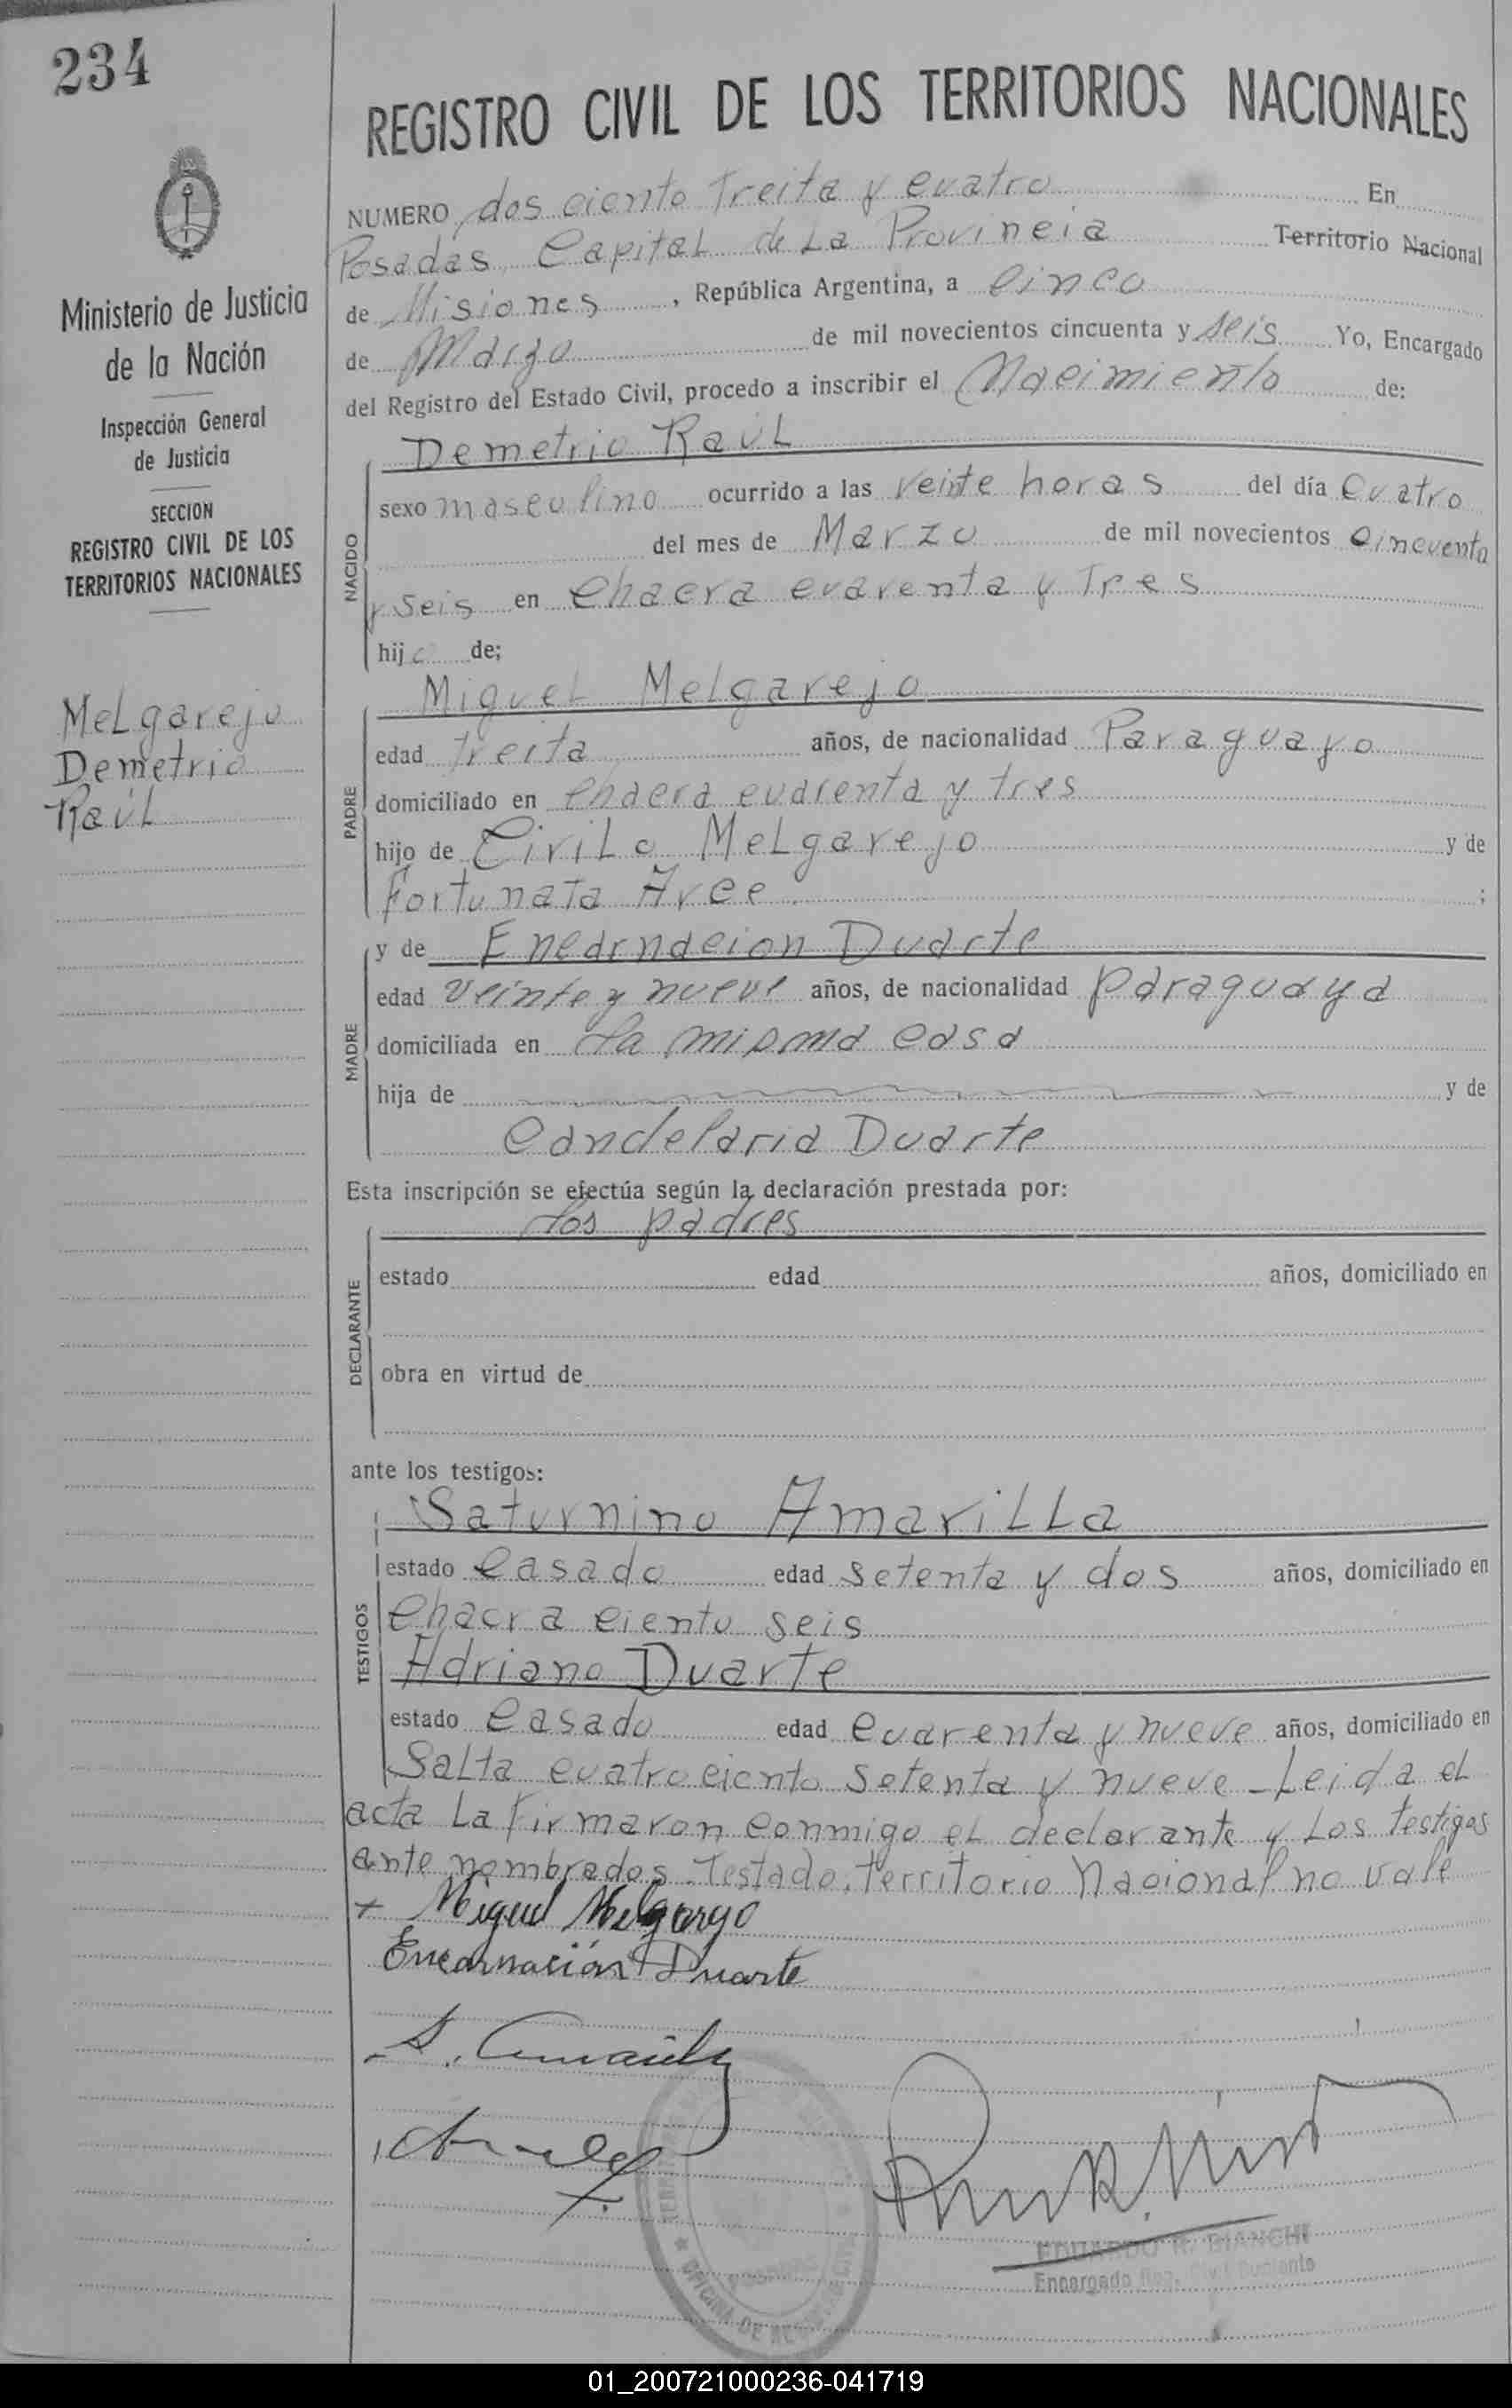 234
Ministerio de Justicia
de la Nación
Inspección General
de Justicia
SECCION
REGISTRO CIVIL DE LOS
TERRITORIOS NACIONALES
Melgarejo
Demetrio
Raúl
REGISTRO CIVIL DE LOS TERRITORIOS NACIONALES
NUMERO dos ciento treita y cuatro En
Posadas, Capital de La Provincia Territorio Nacional
de Misiones, República Argentina, a cinco
de Marzo de mil novecientos cincuenta y seis Yo, Encargado
del Registro del Estado Civil, procedo a inscribir el Nacimiento de:
Demetrio Raúl
NACIDO
sexo masculino ocurrido a las veinte horas del día cuatro
del mes de Marzo de mil novecientos cincuenta
y seis en chacra cuarenta y tres
hijo de;
Miguel Melgarejo
PADRE
edad treita años, de nacionalidad Paraguayo
domiciliado en chacra cuarenta y tres
hijo de Cirilo Melgarejo y de
Fortunata Arce ;
y de Encarnacion Duarte
MADRE
edad veinte y nueve años, de nacionalidad paraguaya
domiciliada en la misma casa
hija de y de
Candelaria Duarte
Esta inscripción se efectúa según la declaración prestada por:
los padres
DECLARANTE
estado edad años, domiciliado en
obra en virtud de
ante los testigos:
Saturnino Amarilla
TESTIGOS
estado casado edad setenta y dos años, domiciliado en
chacra ciento seis
Adriano Duarte
estado casado edad cuarenta y nueve años, domiciliado en
Salta cuatro ciento setenta y nueve - Leida el
acta La firmaron conmigo el declarante y Los testigos
ante nombrados. Testado: territorio Nacional no vale
+ Miguel Melgarejo
Encarnación Duarte
EDUARDO R. BIANCHI
Encargado Reg. Civil
OFICINA DE
01_200721000236-041719